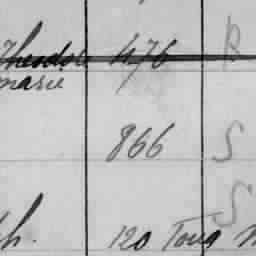 Theodore 476 R
marie
866 S
S
h. 120 Tong